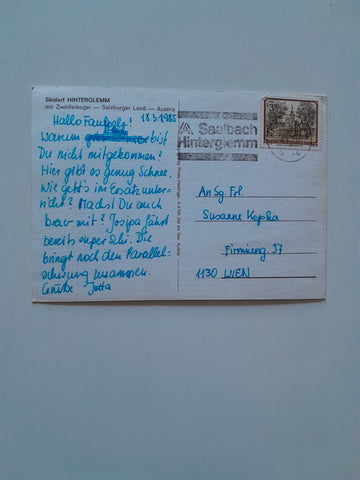 Skidorf HINTERGLEMM
mit Zwölferkogel — Salzburger Land — Austria
18.3.1985
Hallo Faulpelz!
Warum bist
Du nicht mitgekommen?
Hier gibt es genug Schnee.
Wie geht's im Ersatzunter-
richt? Machst Du auch
brav mit? Josipa fährt
bereits super Schi. Die
bringt noch den Parallel-
schwung zusammen.
Grüße Jutta
Saalbach
Hinterglemm
An Sg. Frl.
Susanne
Firmiang. 37
1130 WIEN